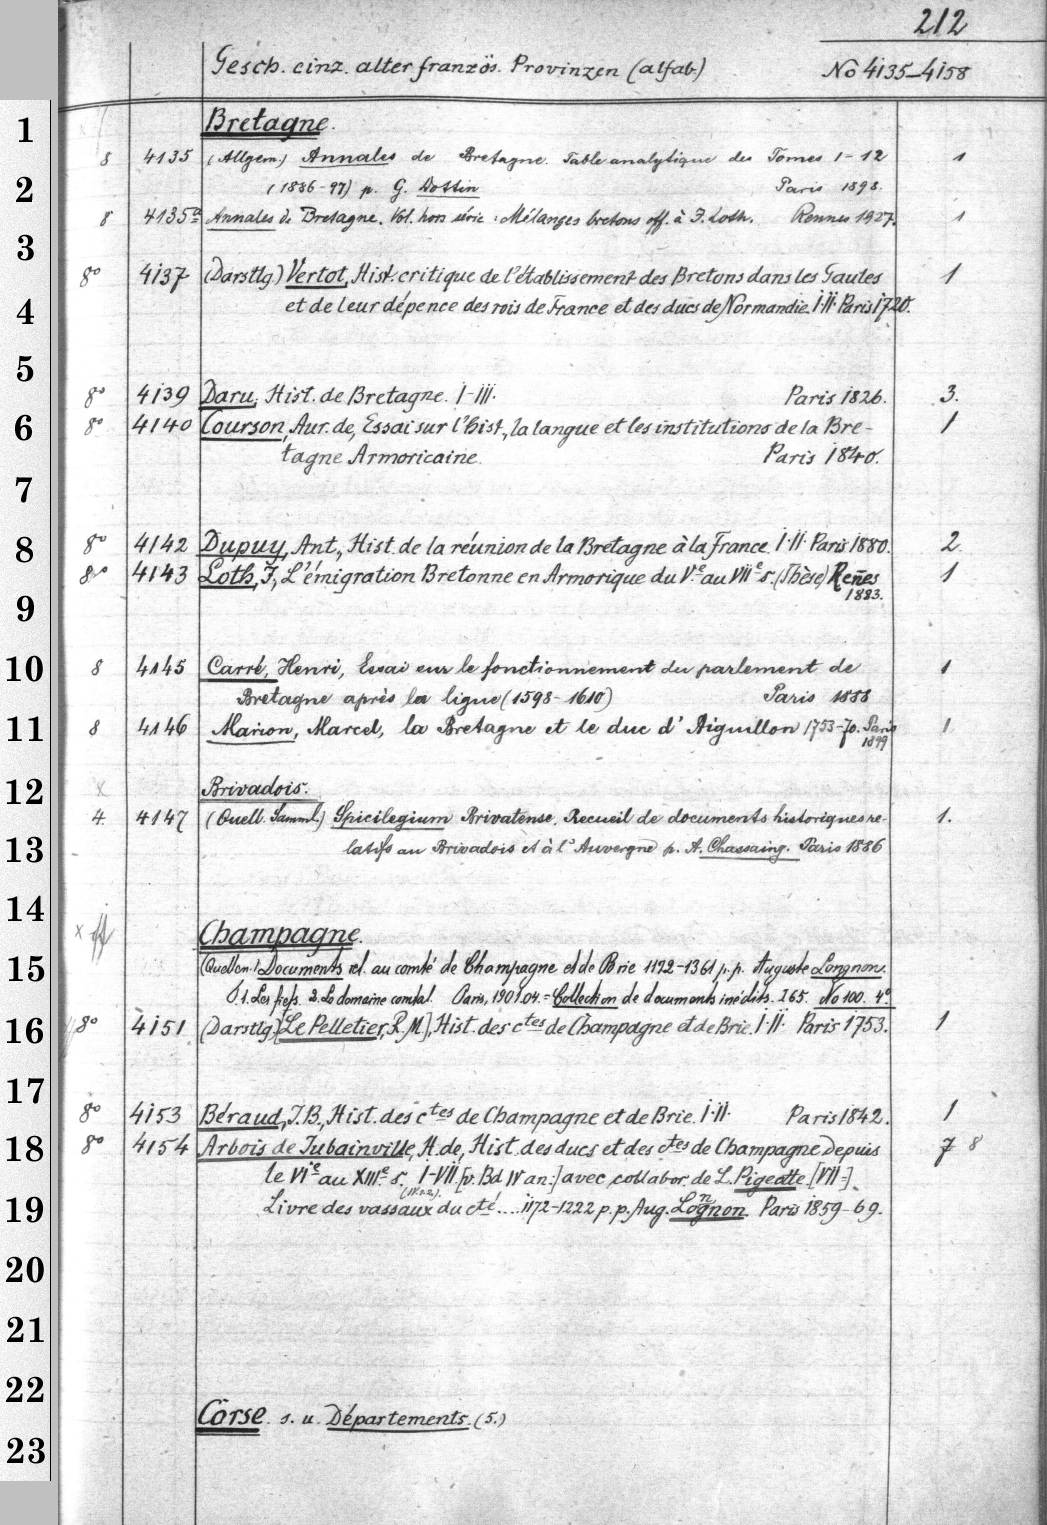 212
Gesch. einz. alter französ. Provinzen (alfab.) No 4135-4158
1 Bretagne.
8 4135 (Allgem.) Annales de Bretagne. Table analytique des Tomes 1-12 1
2 (1886-97) p. G. Dottin Paris 1898.
8 4135a Annales de Bretagne. Vol. hors série: Mélanges bretons off. à J. Loth. Rennes 1927. 1
3
8° 4137 (Darstlg.) Vertot, Hist. critique de l'établissement des Bretons dans les Gaules 1
4 et de leur dépence des rois de France et des ducs de Normandie. I·II· Paris 1720.
5
8° 4139 Daru, Hist. de Bretagne. I-III. Paris 1826. 3.
6 8° 4140 Courson, Aur. de, Essai sur l'hist., la langue et les institutions de la Bre- 1
tagne Armoricaine. Paris 1840.
7
8 8° 4142 Dupuy, Ant., Hist. de la réunion de la Bretagne à la France. I·II· Paris 1880. 2
8° 4143 Loth, J., L'émigration Bretonne en Armorique du Ve au VIIe s. (Thèse) Reñes 1
9 1883.
10 8 4145 Carré, Henri, Essai sur le fonctionnement du parlement de 1
Bretagne après la ligue (1598-1610) Paris 1888
11 8 4146 Marion, Marcel, la Bretagne et le duc d'Aiguillon 1753-70. Paris 1
1899
12 x Brivadois.
4. 4147 (Quell. Samml.) Spicilegium Brivatense. Recueil de documents historiques re- 1.
13 latifs au Brivadois et à l'Auvergne p. A. Chassaing. Paris 1886
14
x Champagne.
15 (Quellen.) Documents rel. au comté de Champagne et de Brie 1172-1361 p. p. Auguste Longnon.
1. Les fiefs. 2. Le domaine comtal. Paris, 1901.04. = Collection de documents inédits. 265. No 100. 4°
16 8° 4151 (Darstlg.) [Le Pelletier, R. M.], Hist. des ctes de Champagne et de Brie. I·II· Paris 1753. 1
17
8° 4153 Béraud, J.B., Hist. des ctes de Champagne et de Brie. I·II· Paris 1842. 1
18 8° 4154 Arbois de Jubainville, H. de, Hist. des ducs et des ctes de Champagne depuis 7 8
le VIe au XIIIe s. I-VII [v. Bd IV an:] avec collabor. de L. Pigeotte. [VII:]
19 Livre des vassaux du cté .... 1172-1222 p. p. Aug. Lognon Paris 1859-69.
20
21
22
Corse. s. u. Départements. (5.)
23